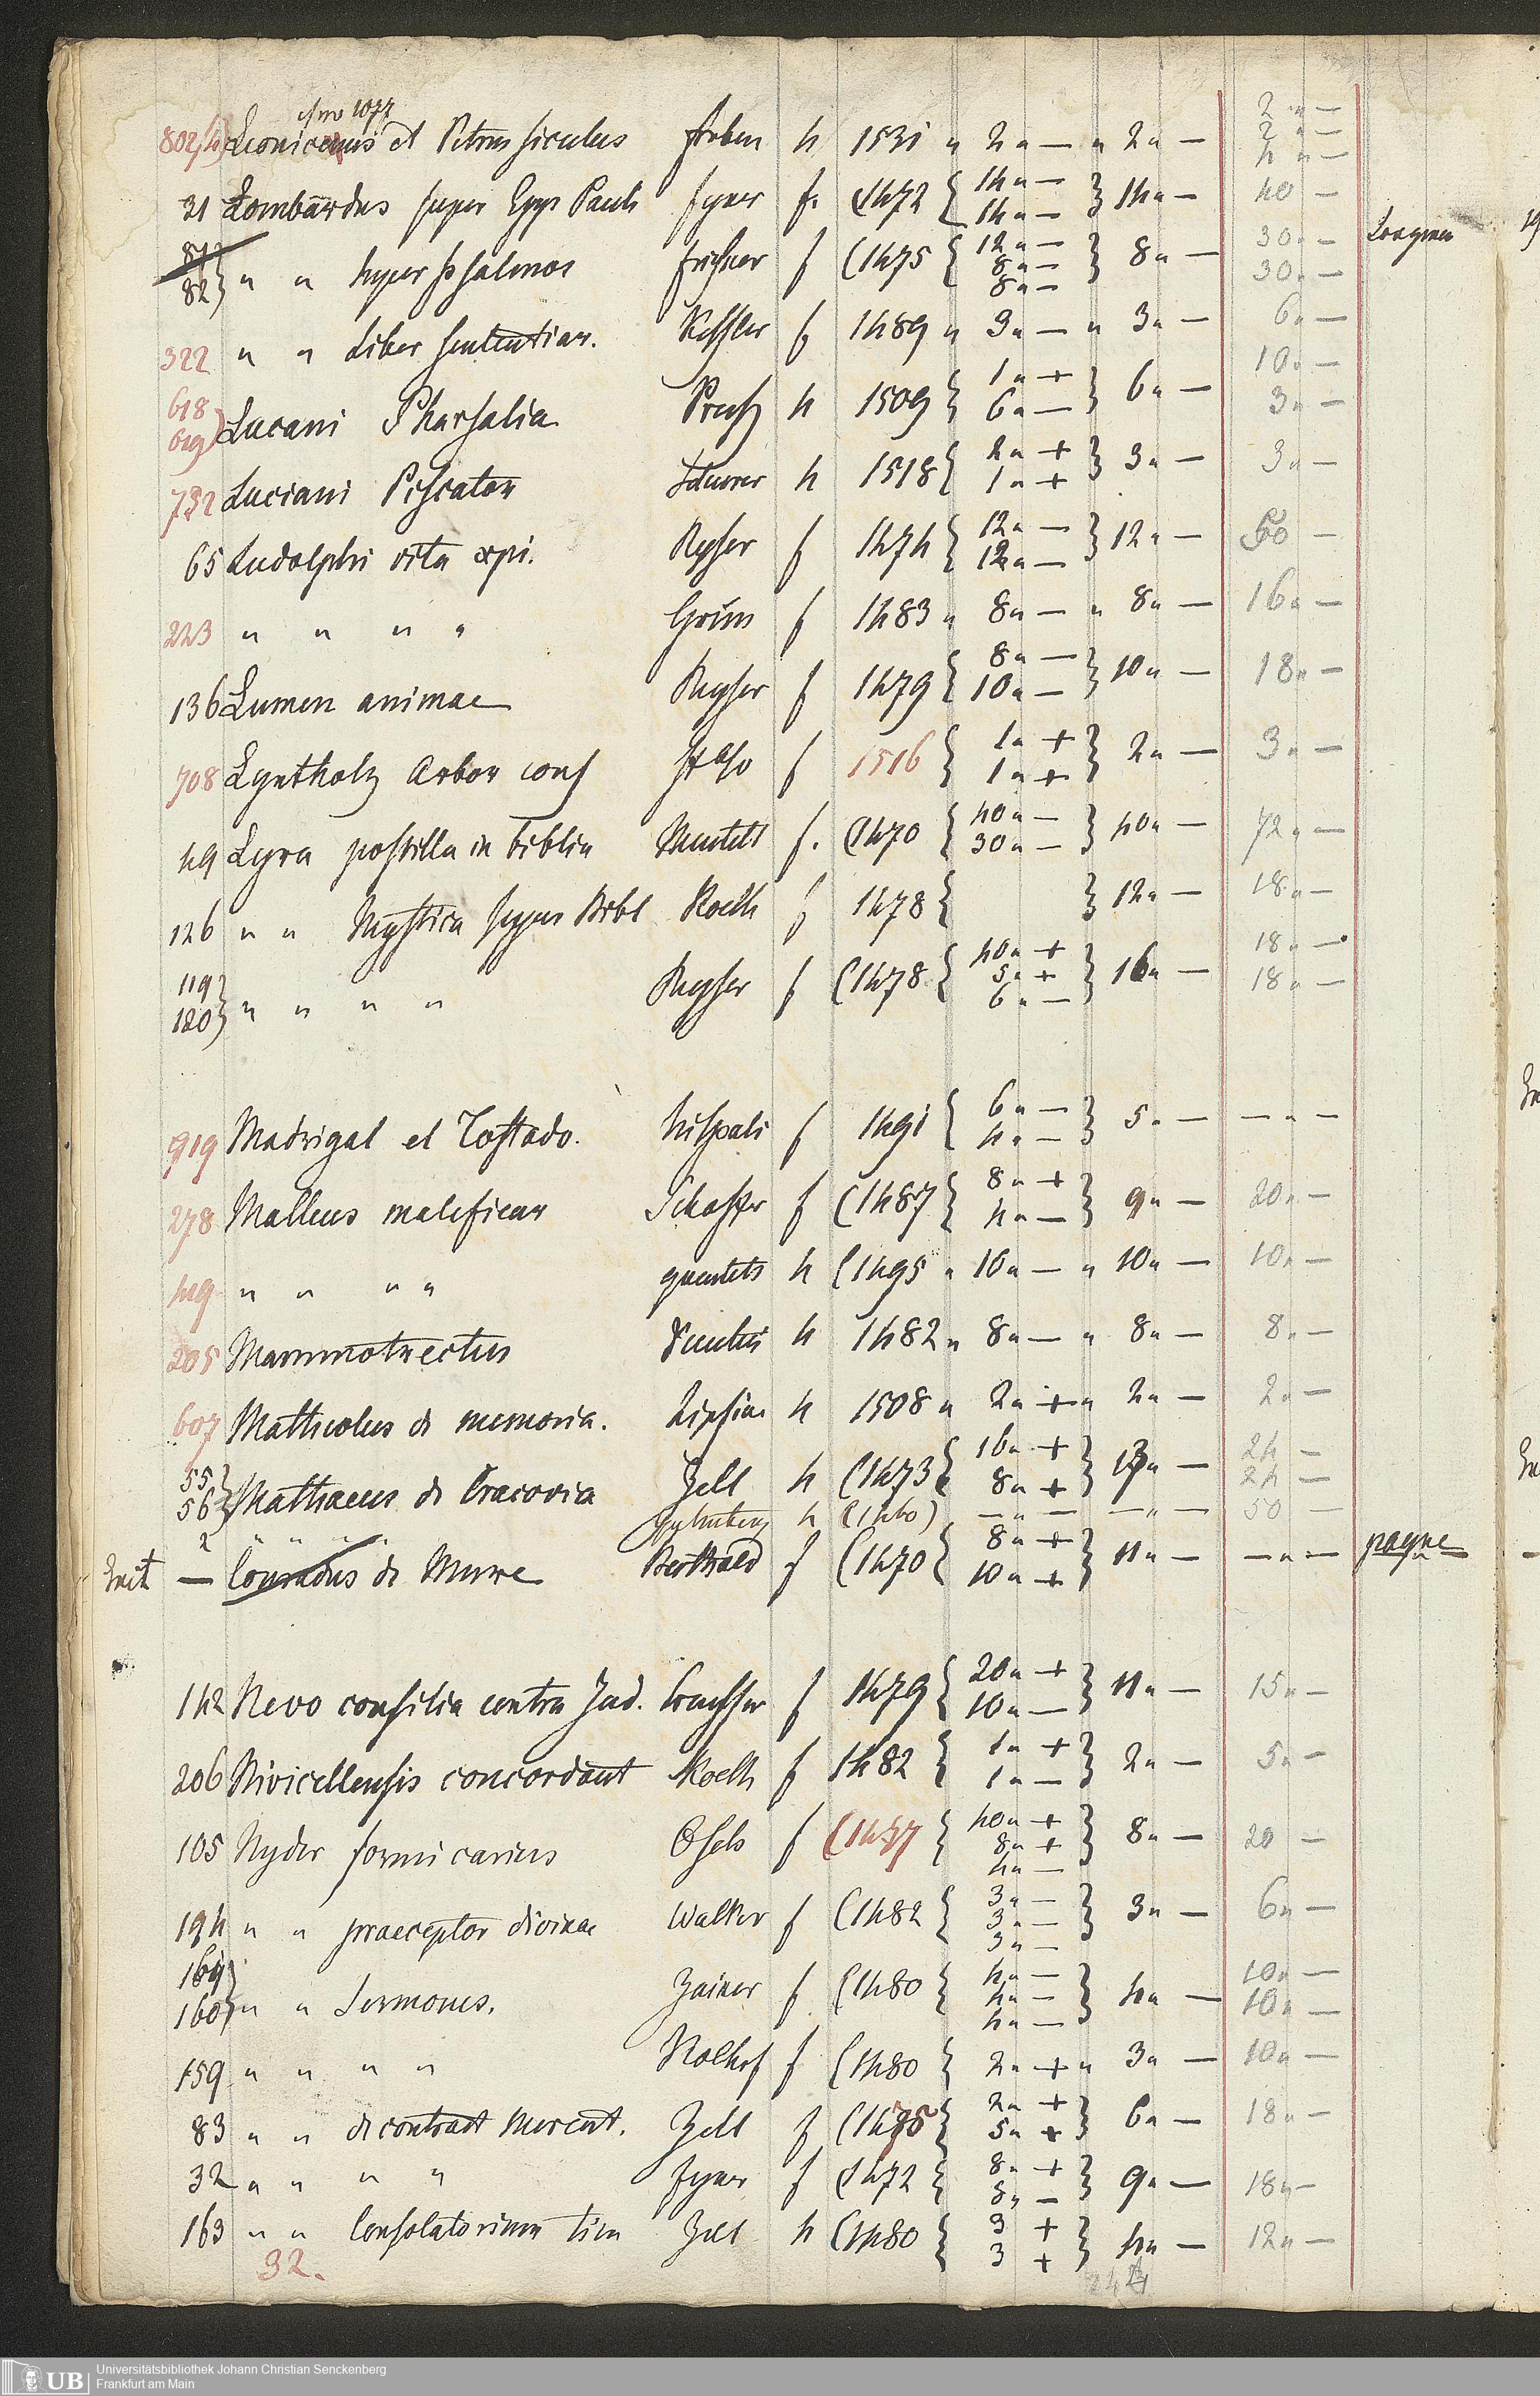 802
Leonicenus et Petrus Siculus Froben 4 1531 " 2 " — " 2 " — 2 " —
2 " —
4 " —
31 Lombardus super Epp Pauli Fyner f. (1472 { 14 " — 14 " — } 14 " — 40 —
81
82 } " " super psalmos f (1475 { 12 " — 8 " — 8 " — } 8 " — 30 " — 30 " —
322 " " Liber sententiar. Kessler f 1489 " 3 " — " 3 " — 6 " —
618
619) Lucani Pharsalia Pruss 4 1509 { 1 " + 6 " — } 6 " — 10 " — 3 " —
732 Luciani Piscator Schurer 4 1518 { 2 " + 1 " + } 3 " — 3 " —
65 Ludolphi vita xpi. Ryser f 1474 { 12 " — 12 " — } 12 " — 50 —
223 " " " " Grüns f 1483 " 8 " — " 8 " — 16 " —
136 Lumen animae Reyser f 1479 { 8 " — 10 " — } 10 " — 18 " —
708 Lyntholz Arbor cons f 1516 { 1 " + 1 " + } 2 " — 3 " —
49 Lyra postilla in biblia Mentell f. (1470 { 40 " — 30 " — } 40 " — 72 " —
126 " " Mystica super Bibl Koelh f 1478 { } 12 " — 18 " —
119
120 } " " " " Reyser f (1478 { 40 " + 5 " + 6 " — } 16 " — 18 " — 18 " —
919 Madrigal el Tostado. hispali f 1491 { 6 " — 4 " — } 5 " — — " —
278 Malleus maleficar Schoffer f (1487 { 8 " + 4 " — } 9 " — 20 " —
419 " " " " quentels 4 (1495 " 10 " — " 10 " — 10 " —
205 Mammotrectus 4 1482 " 8 " — " 8 " — 8 " —
607 Matheolus de memoria. Lipsiae 4 1508 " 2 " + " 2 " — 2 " —
55
56 } Mathaeus de Cracovia Zell 4 (1473 { 16 " + 8 " + } 13 " — 24 — 24 —
2 " " " " Guttenberg 4 (1460) — " — — " — 50 —
— Conradus de Mure Berthold f (1470 { 8 " + 10 " + } 11 " — — " — payne
142 Nevo consilia contra Jud. Creusser f 1479 { 20 " + 10 " — } 11 " — 15 " —
206 Nivicellensis concordant Koelh f 1482 { 1 " + 1 " — } 2 " — 5 " —
105 Nyder formicarius f { 40 " + 8 " + 4 " — } 8 " — 20 —
194 " " praeceptor divinae Walker f (1482 { 3 " — 3 " — 3 " — } 3 " — 6 " —
160 } " " Sermones. Zainer f (1480 { 4 " — 4 " — 4 " — } 4 " — 10 " — 10 " —
159 " " " " Kolhof f (1480 { 2 " + " 3 " — 10 " —
83 " " de contract Mercat. Zell f (1475 { 2 " + 5 " + } 6 " — 18 " —
32 " " " " Fyner f (1472 { 8 " + 8 " — } 9 " — 18 " —
163 " " Consolatorium tim Zell 4 (1480 { 3 + 3 + } 4 " — 12 " —
32.
UB Universitätsbibliothek Johann Christian Senckenberg
Frankfurt am Main